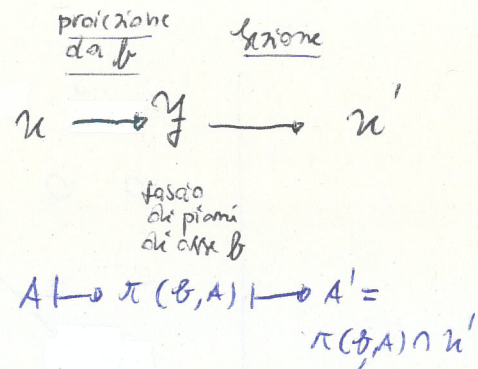 proiezione sezione
da b
u → 𝓕 → u'
fascio
di piani
di asse b
A ↦ π(b,A) ↦ A' =
π(b,A) ∩ u'